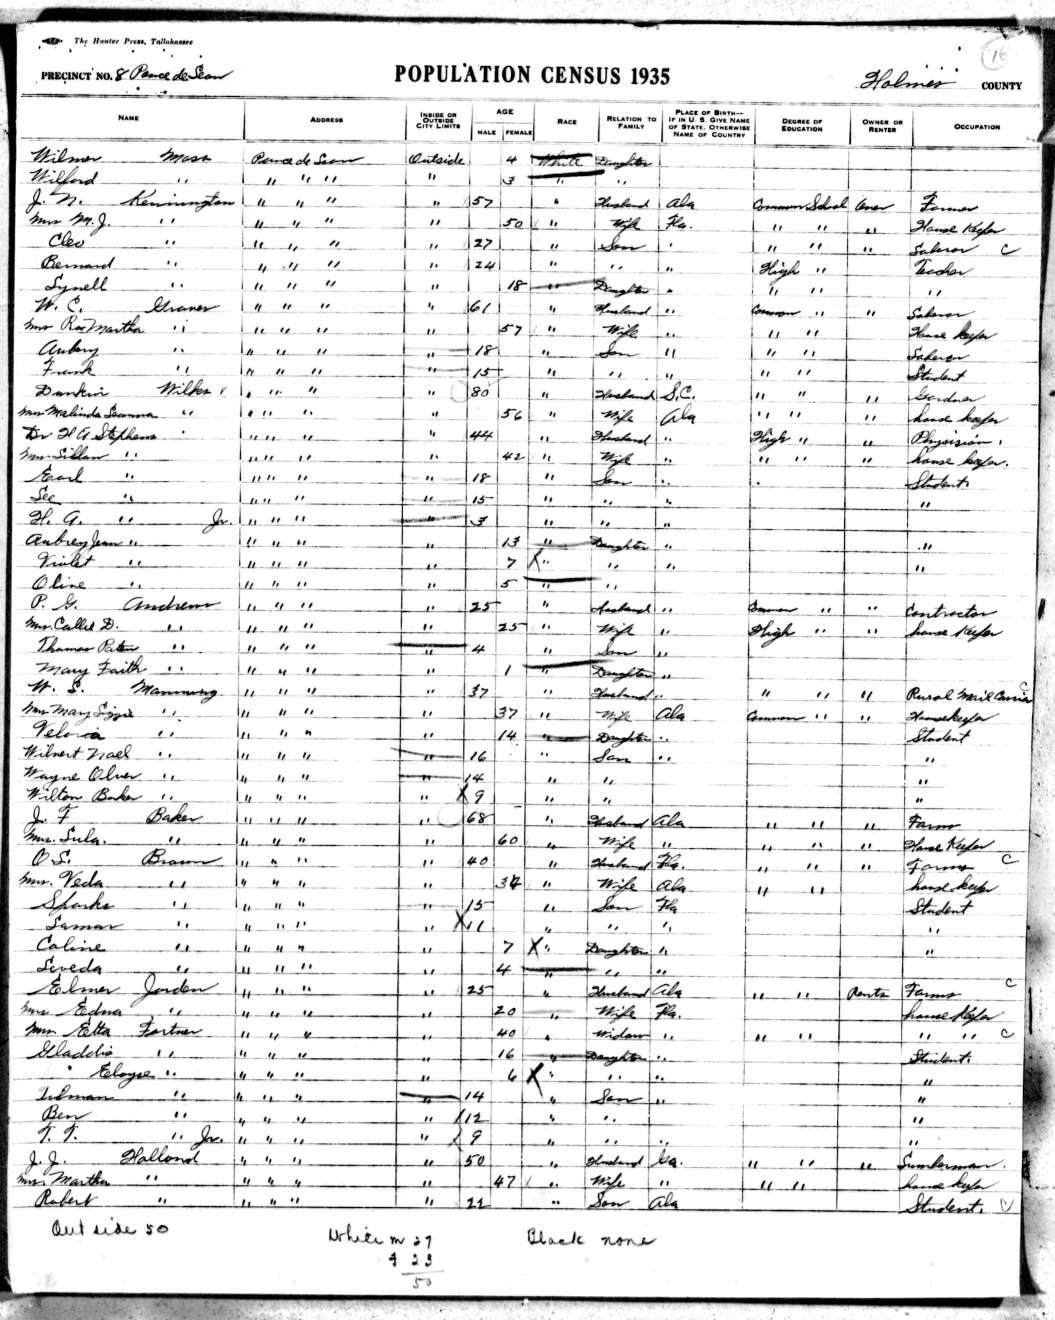 The Hunter Press, Tallahassee
16
PRECINCT NO. 8 Ponce de Leon POPULATION CENSUS 1935 Holmes COUNTY
NAME ADDRESS INSIDE OR OUTSIDE CITY LIMITS AGE MALE FEMALE RACE RELATION TO FAMILY PLACE OF BIRTH—IF IN U. S. GIVE NAME OF STATE. OTHERWISE NAME OF COUNTRY DEGREE OF EDUCATION OWNER OR RENTER OCCUPATION
Wilmer Moss Ponce de Leon Outside 4 White Daughter
Wilford " " " " " 3 " "
J. N. Kennington " " " " 57 " Husband Ala Common School Owner Farmer
Mrs M. J. " " " " " 50 " Wife Fla. " " " House Keeper
Cleo " " " " " 27 " Son " " " " Laborer C
Bernard " " " " " 24 " " " High " Teacher
Lynell " " " " " 18 " Daughter " " " "
W. C. Graves " " " " 61 " Husband " Common " " Laborer
Mrs Roxy Martha " " " " " 57 " Wife " " " House Keeper
Aubery " " " " " 18 " Son " " " Laborer
Frank " " " " " 15 " " " " " Student
Dunkin Wilks " " " " 80 " Husband S.C. " " " Gardner
Mrs Malinda Leanna " " " " " 56 " Wife Ala " " house keeper
Dr H A Stephens " " " " 44 " Husband " High " " Physician
Mrs. Lillan " " " " " 42 " Wife " " " house keeper.
Earl " " " " " 18 " Son " Student.
Lee " " " " " 15 " " " "
H. A. " Jr. " " " " 3 " " "
Aubrey Jean " " " " " 13 " Daughter " "
Violet " " " " " 7 X " " " "
Oline " " " " " 5 " "
P. G. Andrews " " " " 25 " Husband " Common " " Contractor
Mrs. Callie D. " " " " " 25 " Wife " High " " house Keeper
Thomas " " " " " 4 " Son "
Mary Faith " " " " " 1 " Daughter "
W. S. Manning " " " " 37 " Husband " " " " Rural Mail Carrier C
Mrs Mary Lizzie " " " " " 37 " Wife Ala Common " " Housekeeper
Velora " " " " " 14 " Daughter " Student
Wilmert Noel " " " " " 16 " Son " "
Wayne Olver " " " " " 14 " " "
Wilton Baker " " " " " X 9 " " "
J. F Baker " " " " 68 " Husband Ala " " " Farms
Mrs. Lula. " " " " " 60 " Wife " " " " House Keeper
O S. Brown " " " " 40 " Husband Fla. " " " Farms C
Mrs. Veda " " " " " 34 " Wife Ala " " house keeper
Sparks " " " " " 15 " Son Fla Student
Lamar " " " " " X 11 " " " "
Coline " " " " " 7 X " Daughter " "
Leveda " " " " " 4 " " "
Elmer Jorden " " " " 25 " Husband Ala " " Rents Farms C
Mrs Edna " " " " " 20 " Wife Fla. house keeper
Mrs. Etta Fortner " " " " 40 " Widow " " " " " C
Gladdis " " " " " 16 " Daughter " Student.
" Eloyse " " " " " 6 X " " " "
Tilman " " " " " 14 " Son " "
Ben " " " " " 12 " " "
T. T. " Jr. " " " " 9 " " " "
J. J. Holland " " " " 50 " Husband Ga. " " " Lumberman.
Mrs. Martha " " " " " 47 " Wife " " " house keeper
Robert " " " " " 22 " Son Ala Student. C
Outside 50 White m 27 Black none
f 23
50